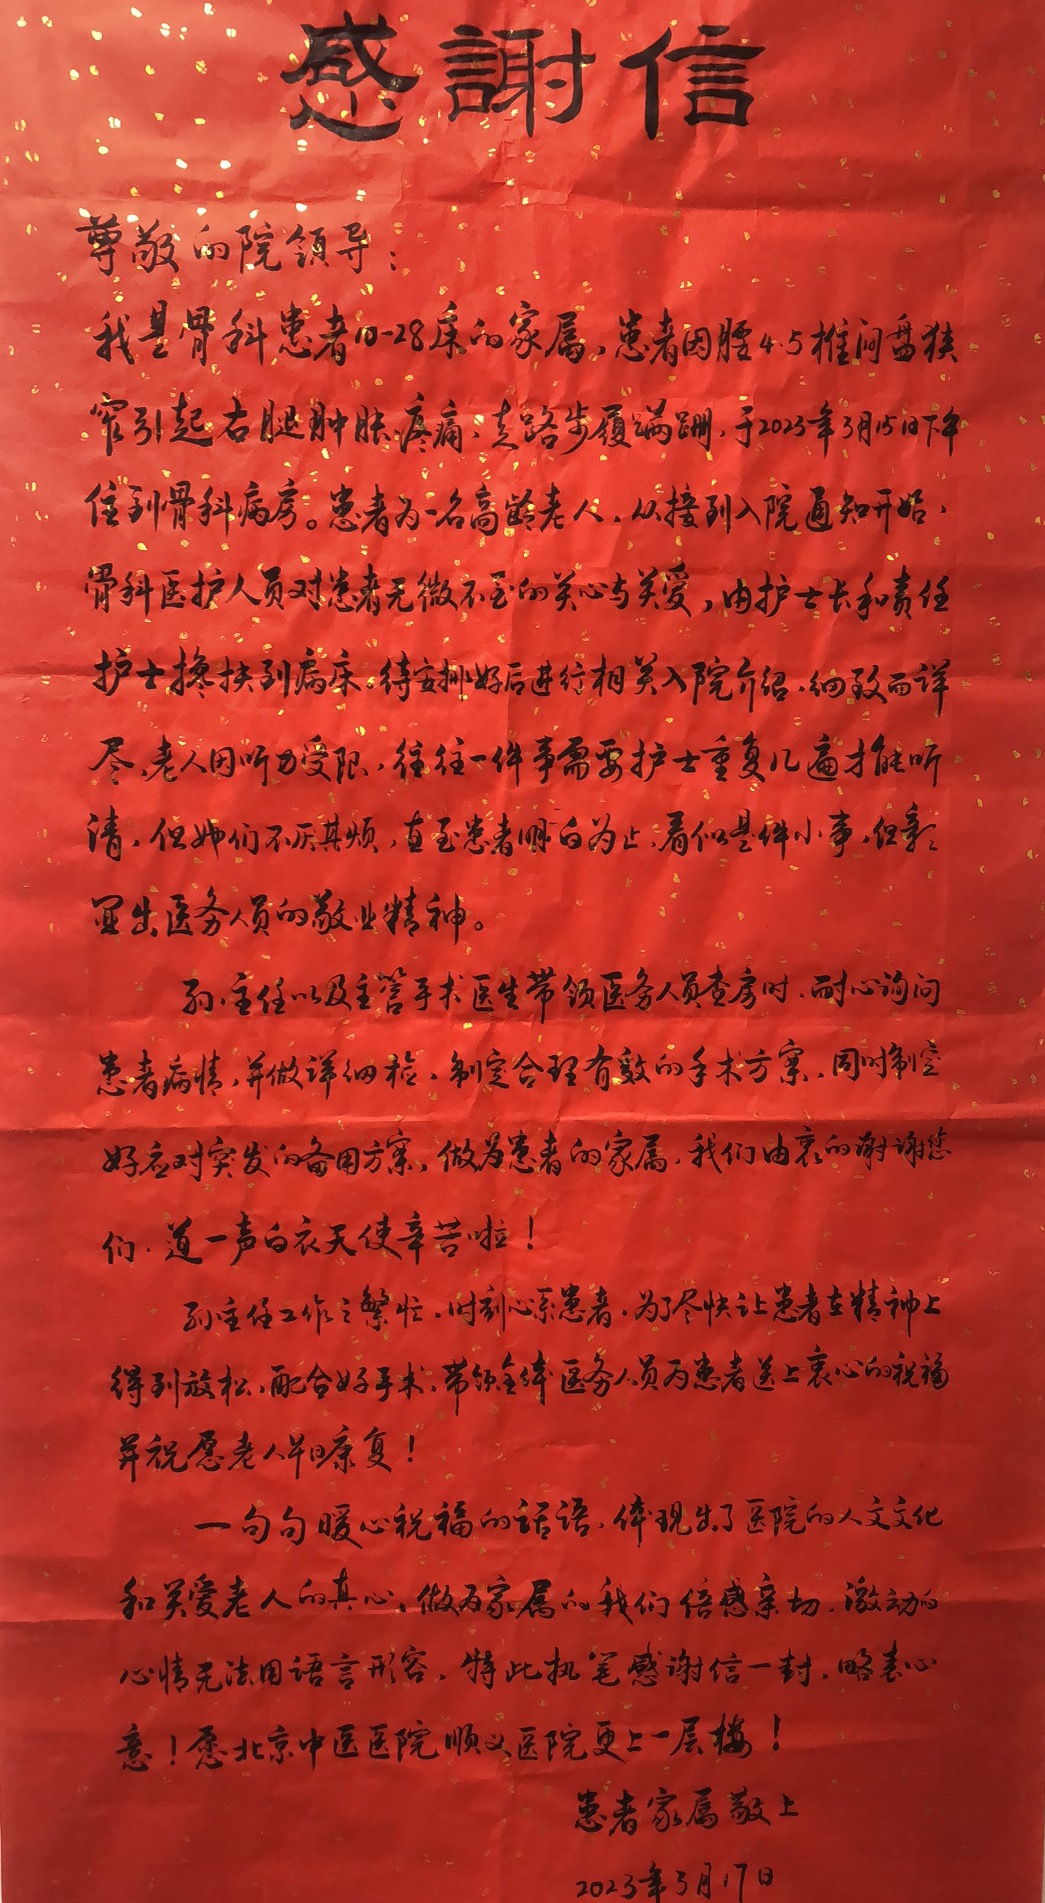 感謝信
尊敬的院领导：
我是骨科患者10-28床的家属，患者因腰4.5椎间盘狭
窄引起右腿肿胀疼痛，走路步履蹒跚，于2023年3月15日下午
住到骨科病房。患者为一名高龄老人，从接到入院通知开始，
骨科医护人员对患者无微不至的关心与关爱，由护士长和责任
护士搀扶到病床。待安排好后进行相关入院介绍，细致而详
尽，老人因听力受限，往往一件事需要护士重复几遍才能听
清，但她们不厌其烦，直至患者明白为止，看似是件小事，但彰
显出医务人员的敬业精神。
孙主任以及主管手术医生带领医务人员查房时，耐心询问
患者病情，并做详细检，制定合理有效的手术方案，同时制定
好应对突发的备用方案，做为患者的家属，我们由衷的谢谢您
们，道一声白衣天使辛苦啦！
孙主任工作之繁忙，时刻心系患者，为了尽快让患者在精神上
得到放松，配合好手术，带领全体医务人员为患者送上衷心的祝福
并祝愿老人早日康复！
一句句暖心祝福的话语，体现出了医院的人文文化
和关爱老人的真心，做为家属的我们倍感亲切，激动的
心情无法用语言形容，特此执笔感谢信一封，略表心
意！愿北京中医医院顺义医院更上一层楼！
患者家属敬上
2023年3月17日